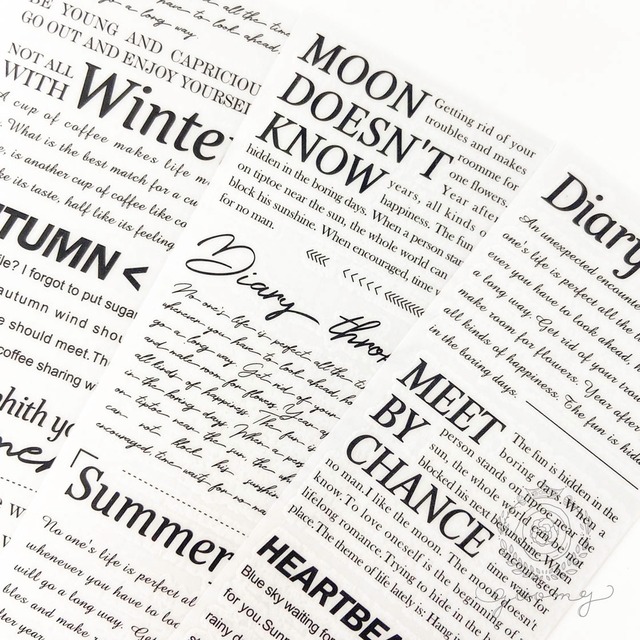 the diary time,
have to look ahead,
go a long way
BE YOUNG AND CAPRICIOU
GO OUT AND ENJOY YOURSEL
NOT ALL
WITH
Winte
A cup of coffee makes life m
What is the best match for a cu
is another cup of coffee like co
its taste, half like its feeling
UTUMN <
file? I forgot to put sugar
autumn wind shou
e should meet. Th
coffee sharing w
MOON
DOESN'T
KNOW
Getting rid of your
troubles and makes
roomne for
one flowers.
Year after
years, all kinds o
happiness. The fun
hidden in the boring days. When a person stan
on tiptoe near the sun, the whole world can
block his sunshine. When encouraged, time
for no man.
Diary thro
No one's life is perfect all the ti
whenever you have to look ahead
go a long way. Get rid of your
and make room for flowers. Year
all kinds of happiness. The fun
in the boring days. When a pers
on tiptoe near the sun, the who
can not block his sunshin
encouraged, time wait for no ma
Summer
No one's life is perfect al
whenever you have to loo
will go a long way.
bles and make
Diary
An unexpected encoun
one's life is perfect all the
ever you have to look ahead,
a long way. Get rid of your tr
make room for flowers. Year after
all kinds of happiness. The fun is hidde
in the boring days.
MEET
BY
CHANCE
The fun is hidden in the
boring days. When a
person stands on tiptoe
sun, the whole world can not
blocked his next
sunshine. When
time waits for
no man. I like the moon. The moon doesn't
know. To love oneself is the beginning of a
lifelong romance. Trying to hide in the
place. The theme of life lately is: Hang
HEARTBEA
Blue sky waiting for
for you. Sunn
rainy d